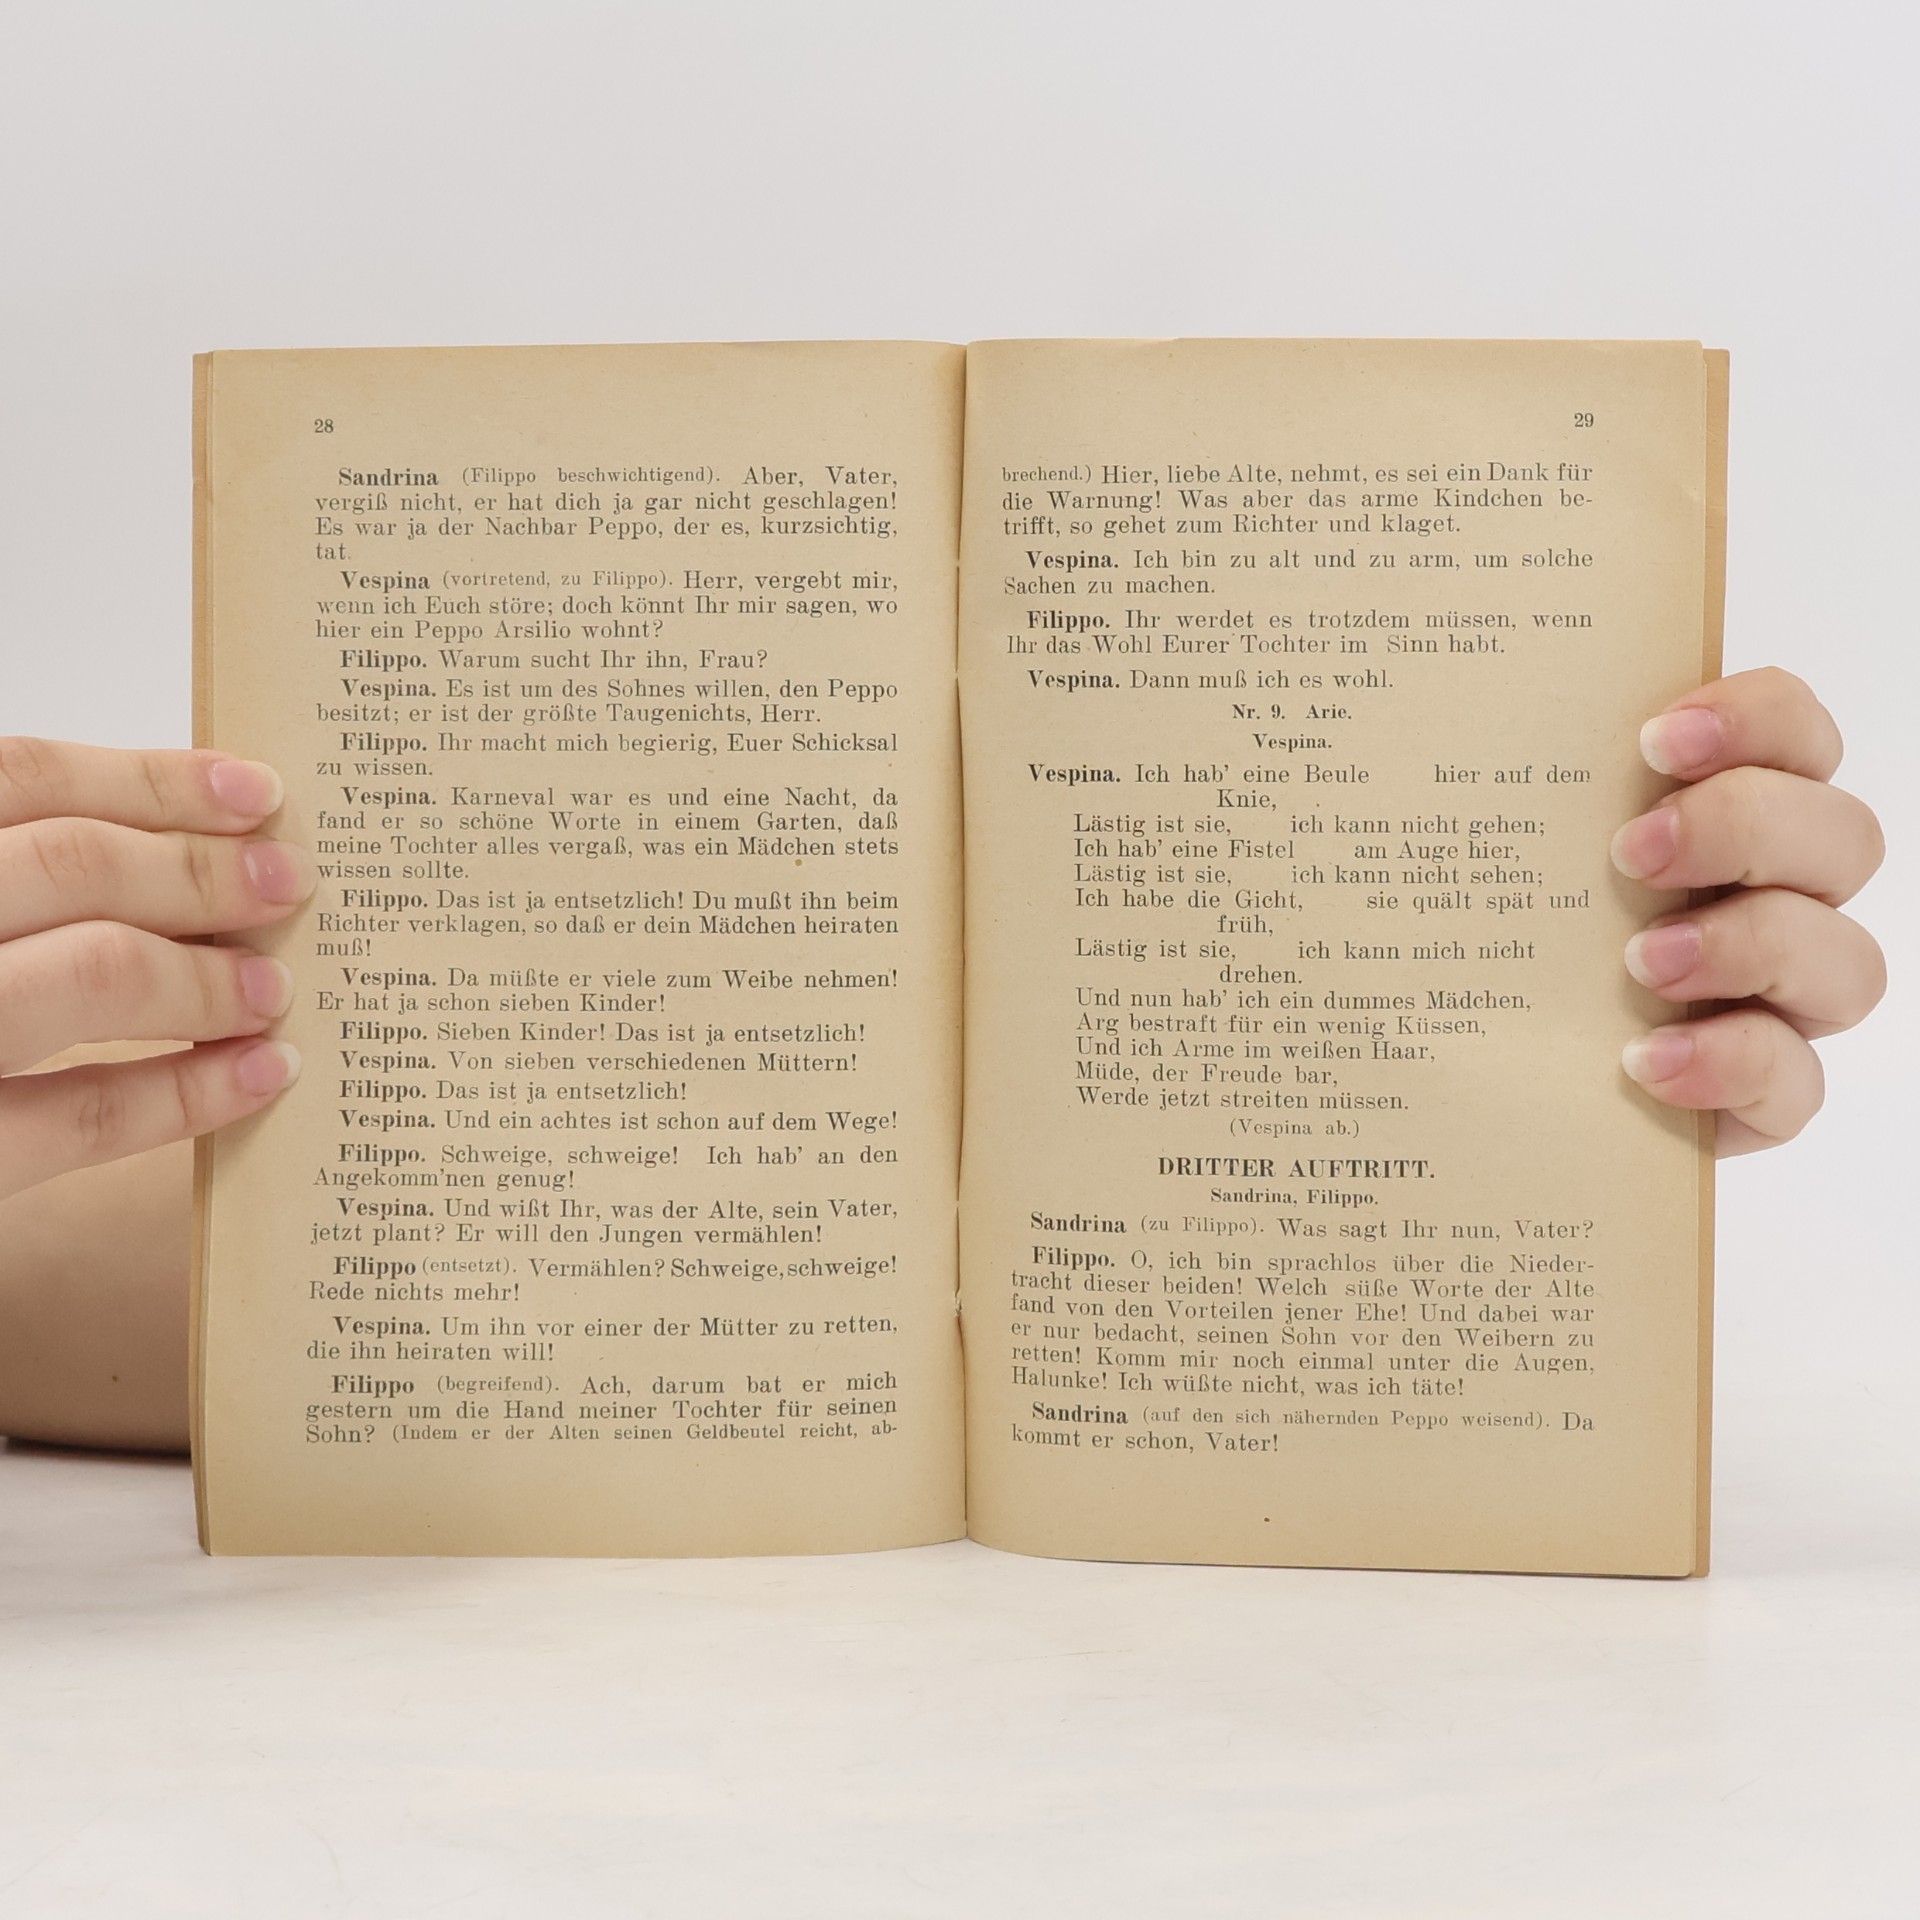 28
Sandrina (Filippo beschwichtigend). Aber, Vater,
vergiß nicht, er hat dich ja gar nicht geschlagen!
Es war ja der Nachbar Peppo, der es, kurzsichtig,
tat.
Vespina (vortretend, zu Filippo). Herr, vergebt mir,
wenn ich Euch störe; doch könnt Ihr mir sagen, wo
hier ein Peppo Arsilio wohnt?
Filippo. Warum sucht Ihr ihn, Frau?
Vespina. Es ist um des Sohnes willen, den Peppo
besitzt; er ist der größte Taugenichts, Herr.
Filippo. Ihr macht mich begierig, Euer Schicksal
zu wissen.
Vespina. Karneval war es und eine Nacht, da
fand er so schöne Worte in einem Garten, daß
meine Tochter alles vergaß, was ein Mädchen stets
wissen sollte.
Filippo. Das ist ja entsetzlich! Du mußt ihn beim
Richter verklagen, so daß er dein Mädchen heiraten
muß!
Vespina. Da müßte er viele zum Weibe nehmen!
Er hat ja schon sieben Kinder!
Filippo. Sieben Kinder! Das ist ja entsetzlich!
Vespina. Von sieben verschiedenen Müttern!
Filippo. Das ist ja entsetzlich!
Vespina. Und ein achtes ist schon auf dem Wege!
Filippo. Schweige, schweige! Ich hab' an den
Angekomm'nen genug!
Vespina. Und wißt Ihr, was der Alte, sein Vater,
jetzt plant? Er will den Jungen vermählen!
Filippo (entsetzt). Vermählen? Schweige, schweige!
Rede nichts mehr!
Vespina. Um ihn vor einer der Mütter zu retten,
die ihn heiraten will!
Filippo (begreifend). Ach, darum bat er mich
gestern um die Hand meiner Tochter für seinen
Sohn? (Indem er der Alten seinen Geldbeutel reicht, ab-
29
brechend.) Hier, liebe Alte, nehmt, es sei ein Dank für
die Warnung! Was aber das arme Kindchen be-
trifft, so gehet zum Richter und klaget.
Vespina. Ich bin zu alt und zu arm, um solche
Sachen zu machen.
Filippo. Ihr werdet es trotzdem müssen, wenn
Ihr das Wohl Eurer Tochter im Sinn habt.
Vespina. Dann muß ich es wohl.
Nr. 9. Arie.
Vespina.
Vespina. Ich hab' eine Beule hier auf dem
Knie,
Lästig ist sie, ich kann nicht gehen;
Ich hab' eine Fistel am Auge hier,
Lästig ist sie, ich kann nicht sehen;
Ich habe die Gicht, sie quält spät und
früh,
Lästig ist sie, ich kann mich nicht
drehen.
Und nun hab' ich ein dummes Mädchen,
Arg bestraft für ein wenig Küssen,
Und ich Arme im weißen Haar,
Müde, der Freude bar,
Werde jetzt streiten müssen.
(Vespina ab.)
DRITTER AUFTRITT.
Sandrina, Filippo.
Sandrina (zu Filippo). Was sagt Ihr nun, Vater?
Filippo. O, ich bin sprachlos über die Nieder-
tracht dieser beiden! Welch süße Worte der Alte
fand von den Vorteilen jener Ehe! Und dabei war
er nur bedacht, seinen Sohn vor den Weibern zu
retten! Komm mir noch einmal unter die Augen,
Halunke! Ich wüßte nicht, was ich täte!
Sandrina (auf den sich nähernden Peppo weisend). Da
kommt er schon, Vater!